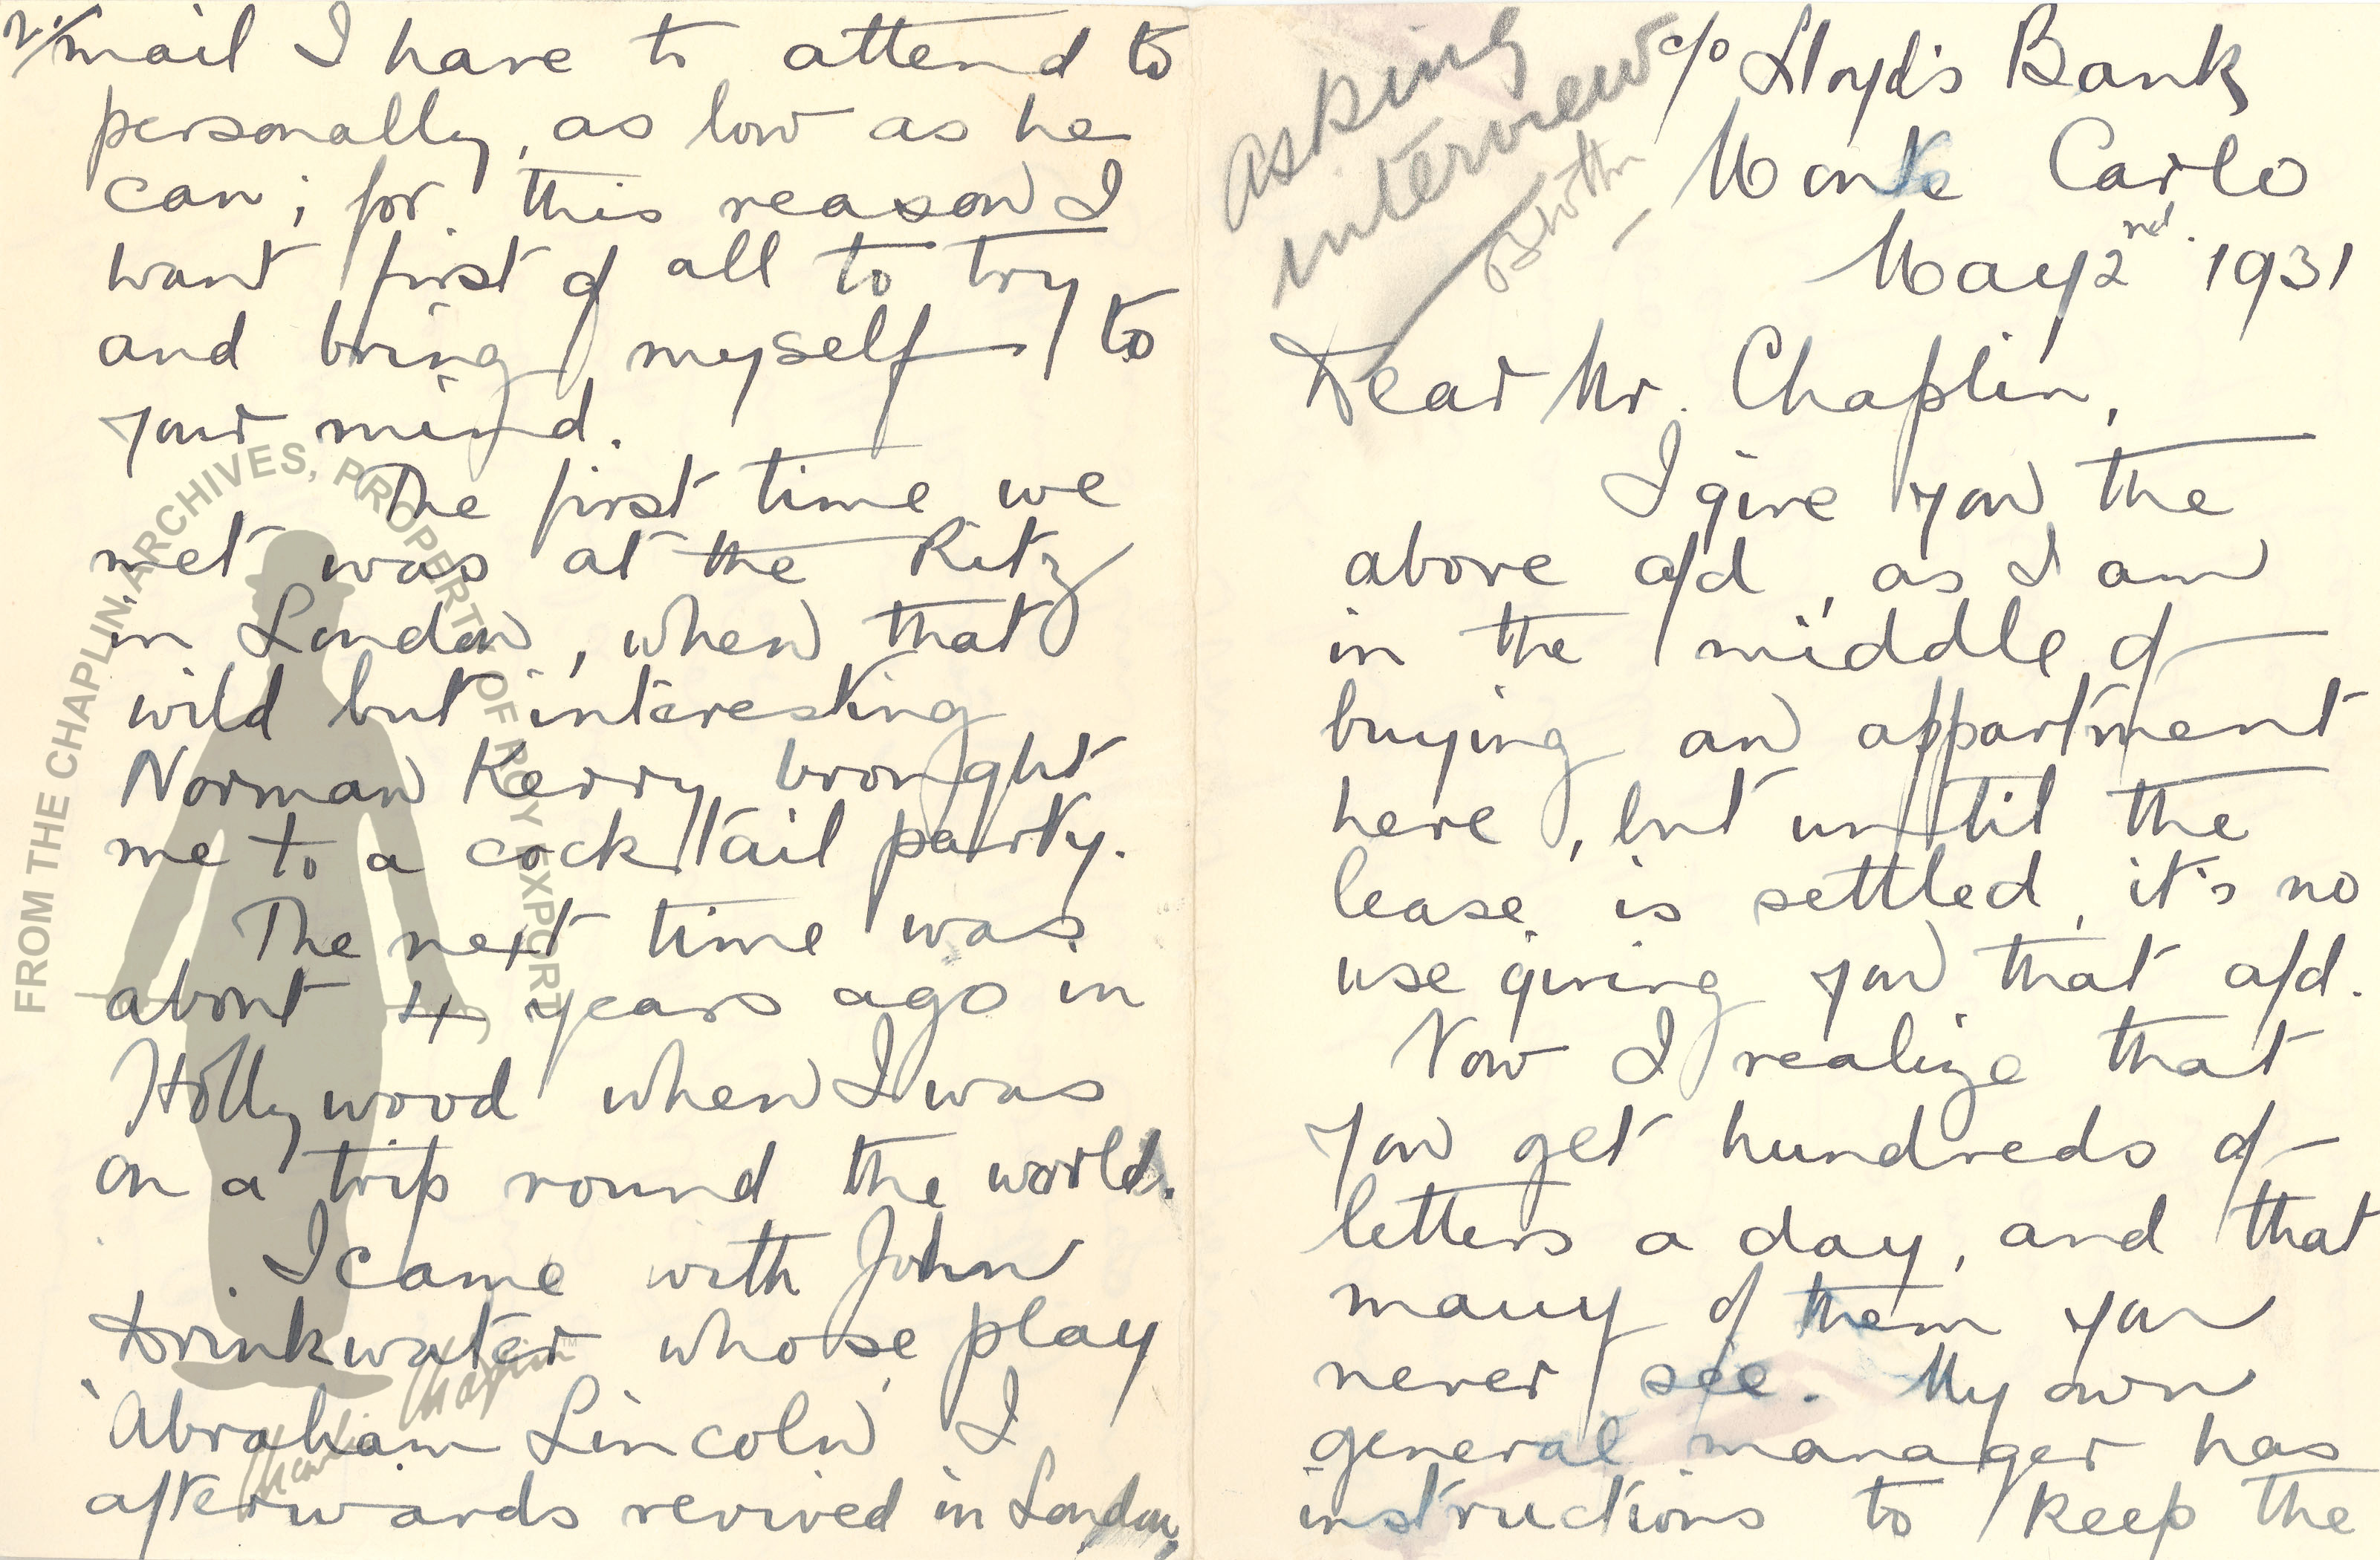 asking
interview
c/o Lloyd's Bank
Monte Carlo
May 2nd. 1931
Dear Mr. Chaplin,
I give you the
above a/d, as I am
in the middle of
buying an appartment
here, but until the
lease is settled, it's no
use giving you that a/d.
Now I realize that
you get hundreds of
letters a day, and that
many of them you
never see. My own
general manager has
instructions to keep the
2/
mail I have to attend to
personally, as low as he
can; for this reason I
want first of all to try
and bring myself to
your mind.
The first time we
met was at the Ritz
in London, when that
wild but interesting
Norman Kerry brought
me to a cocktail party.
The next time was
about 4 years ago in
Hollywood when I was
on a trip round the world.
I came with John
Drinkwater whose play
'Abraham Lincoln' I
afterwards revived in London,
FROM THE CHAPLIN ARCHIVES, PROPERTY OF ROY EXPORT
Charlie Chaplin™